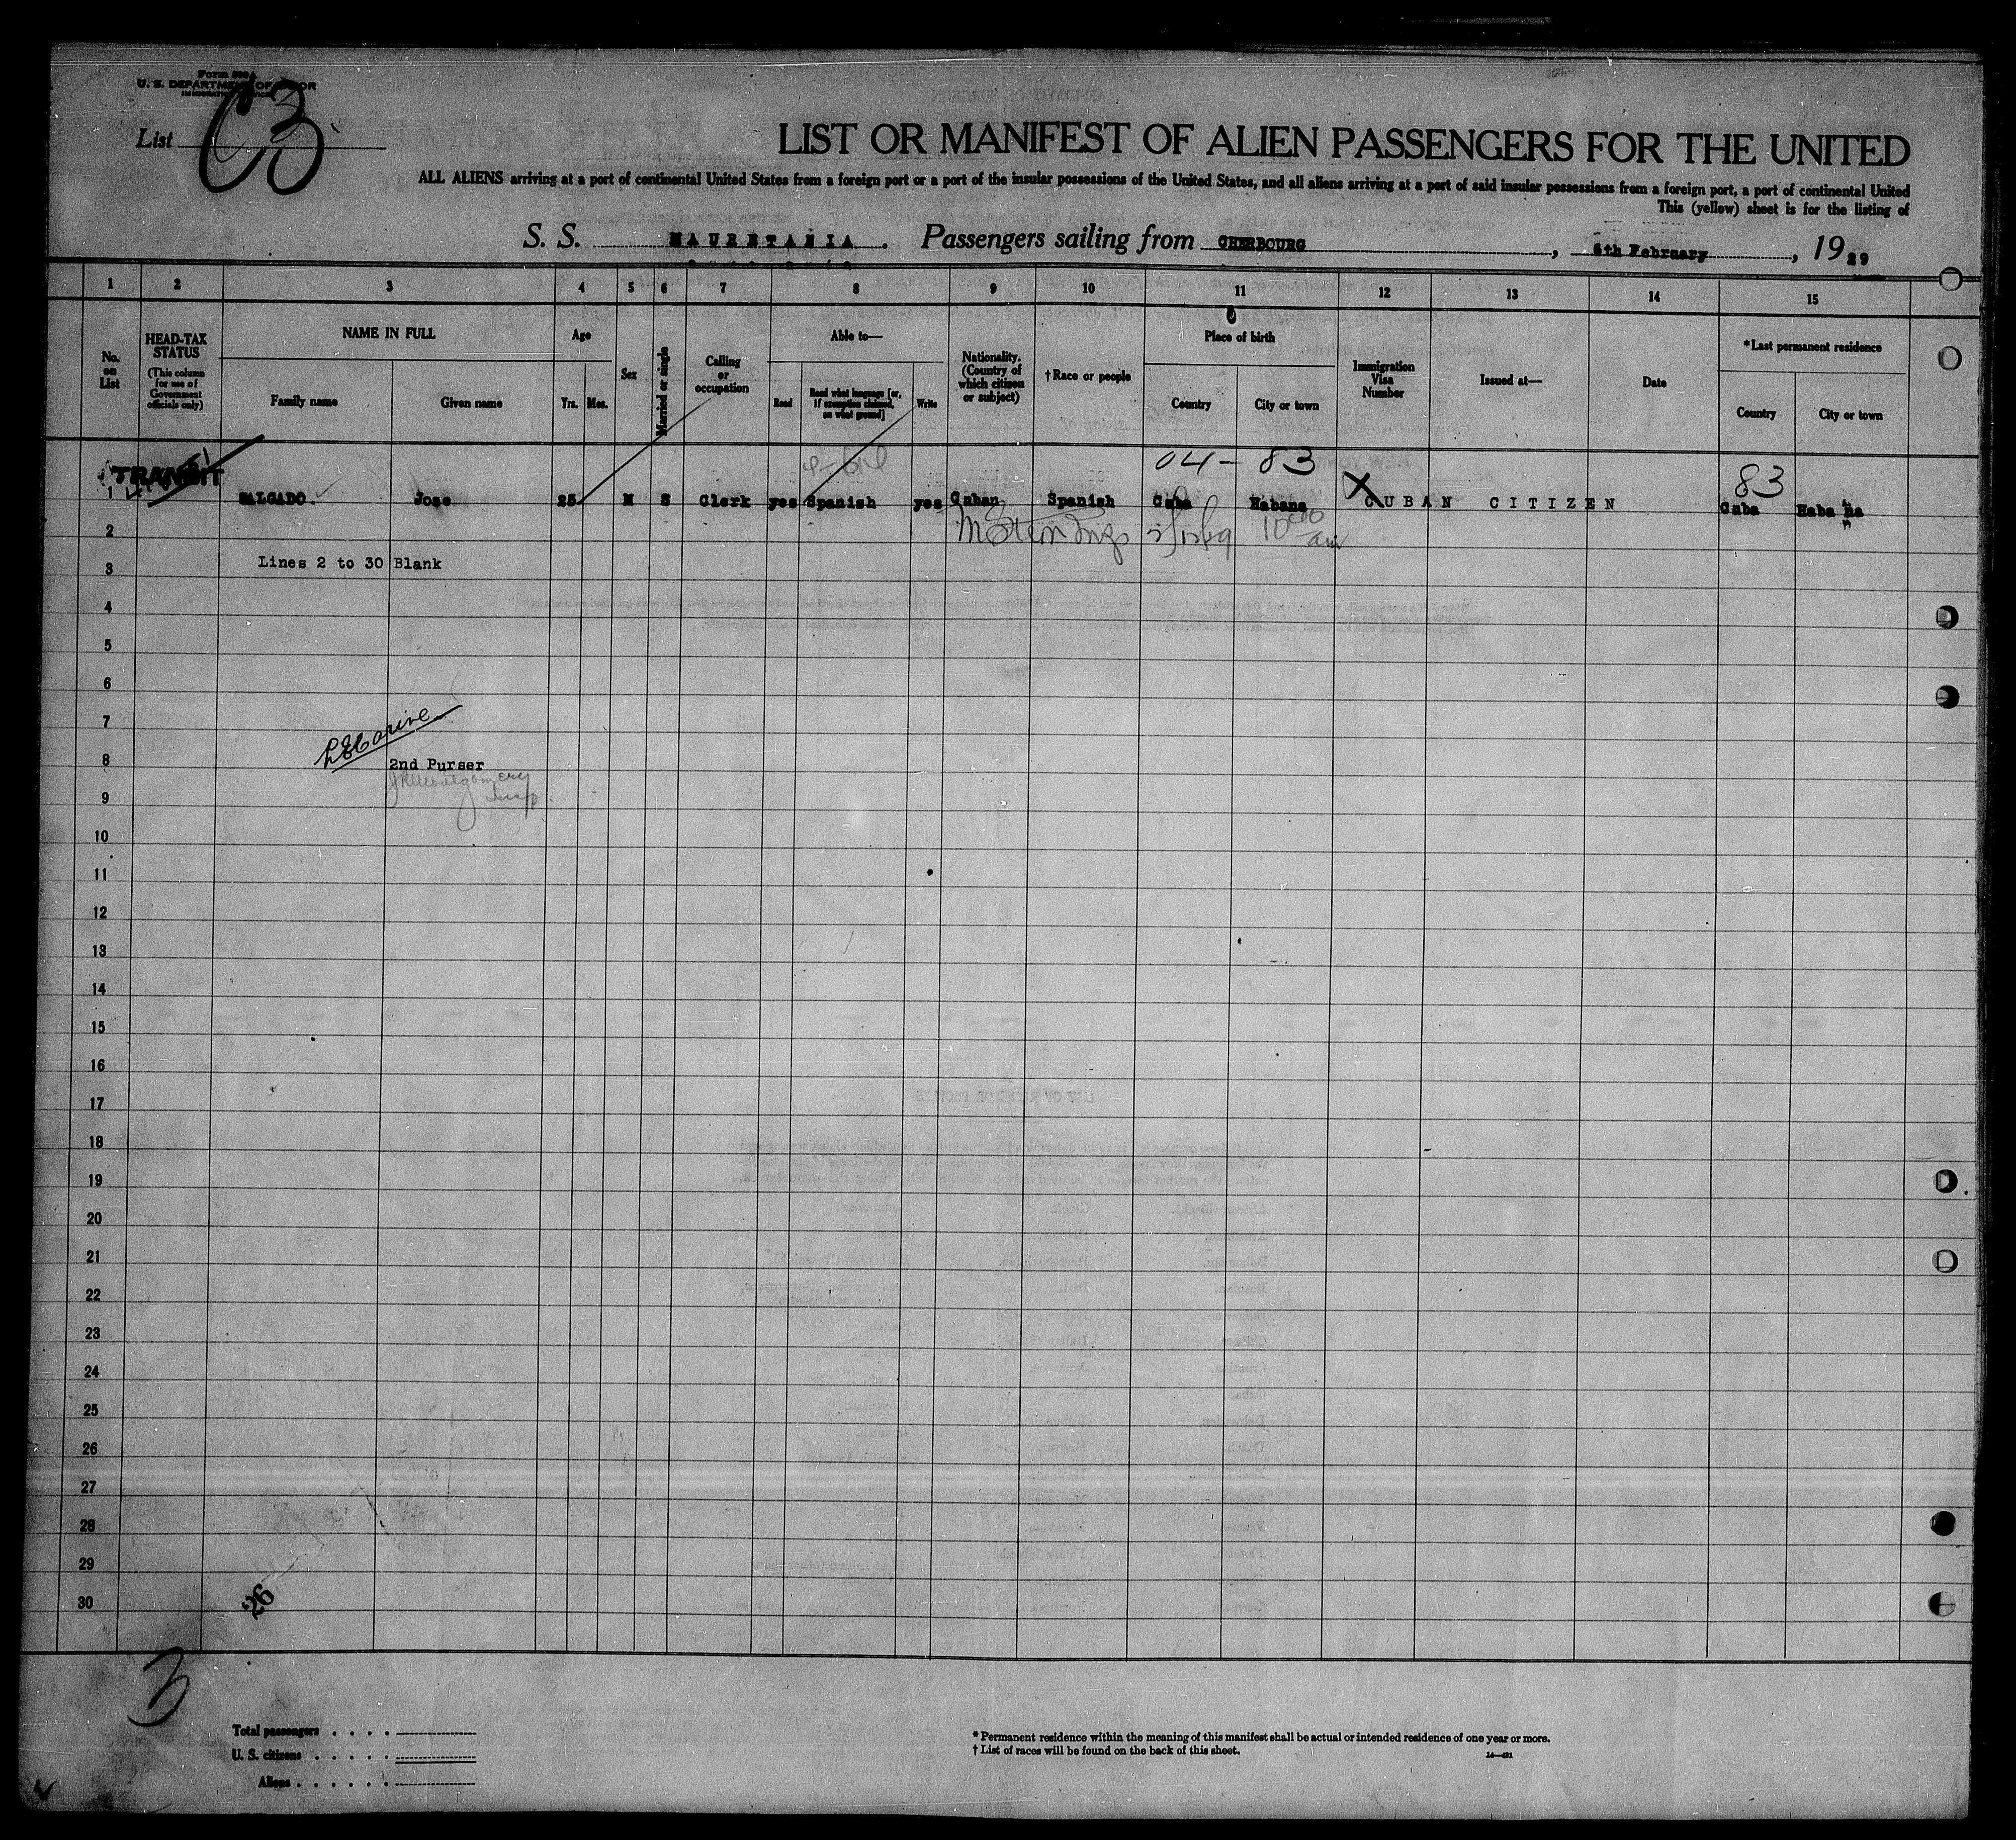 U. S. DEPARTMENT OF LABOR
List C3
LIST OR MANIFEST OF ALIEN PASSENGERS FOR THE UNITED
ALL ALIENS arriving at a port of continental United States from a foreign port or a port of the insular possessions of the United States, and all aliens arriving at a port of said insular possessions from a foreign port, a port of continental United
This (yellow) sheet is for the listing of
S. S. MAURETANIA. Passengers sailing from CHERBOURG, 6th February, 1929
1 2 3 4 5 6 7 8 9 10 11 12 13 14 15
No. on List
HEAD-TAX STATUS
(This column for use of Government officials only)
NAME IN FULL
Family name
Given name
Age
Yrs. Mos.
Sex
Married or single
Calling or occupation
Able to—
Read
Read what language [or, if exemption claimed, on what ground]
Write
Nationality. (Country of which citizen or subject)
† Race or people
Place of birth
Country
City or town
Immigration Visa Number
Issued at—
Date
*Last permanent residence
Country
City or town
04 - 83
83
TRANSIT
1 SALGADO. Jose 25 M S Clerk yes Spanish yes Cuban Spanish Cuba Habana X CUBAN CITIZEN Cuba Habana
2
Lines 2 to 30 Blank
3
4
5
6
7
8
2nd Purser
JR Montgomery
Insp
9
10
11
12
13
14
15
16
17
18
19
20
21
22
23
24
25
26
27
28
29
30
26
3
Total passengers . . . .
U. S. citizens . . . . .
Aliens . . . . . .
* Permanent residence within the meaning of this manifest shall be actual or intended residence of one year or more.
† List of races will be found on the back of this sheet.